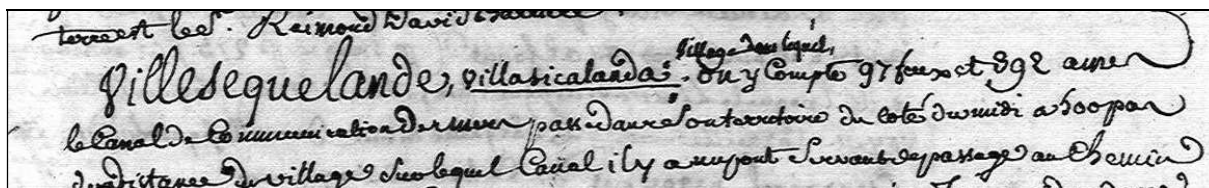 terre est le Sr. Raimond David
Village dans lequel,
Villesequelande, Villasicalanda: on y Compte 97 feux et 392 ames
le Canal de Communication des mers passe dans son territoire du coté du midi a 500 pas
de distance du village sur lequel Canal il y a un pont servant de passage au Chemin